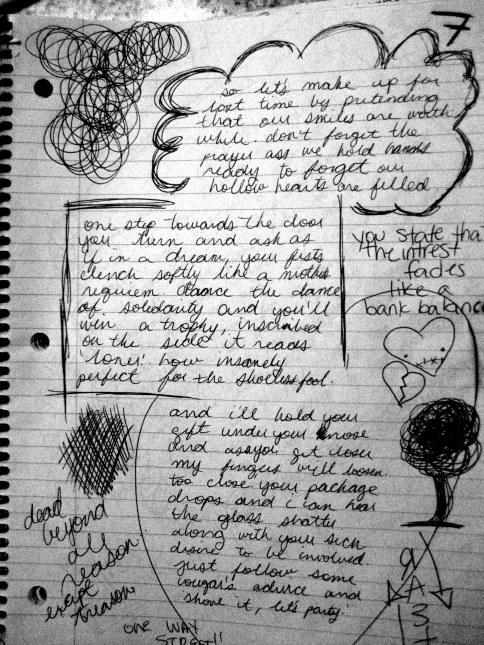 7
so let's make up for
lost time by pretending
that our smiles are worth
while. don't forget the
prayer ass we hold hands
ready to forget our
hollow hearts are filled
one step towards the door
you turn and ask as
if in a dream, your fists
clench softly like a mothers
requiem. dance the dance
of solidarity and you'll
win a trophy, inscribed
on the side it reads
'loner'. how insanely
perfect for the shoeless fool.
you state tha
the intrest
fades
like a
bank balance
and i'll hold your
gift under your nose
and as you get closer
my fingers will loosen.
too close your package
drops and i can hear
the glass shatter
along with your sick
desire to be involved.
just follow some
cougar's advice and
'shove it, let's party.'
dead
beyond
all
reason
except
treason
ONE WAY
STREET!!
9
A
3